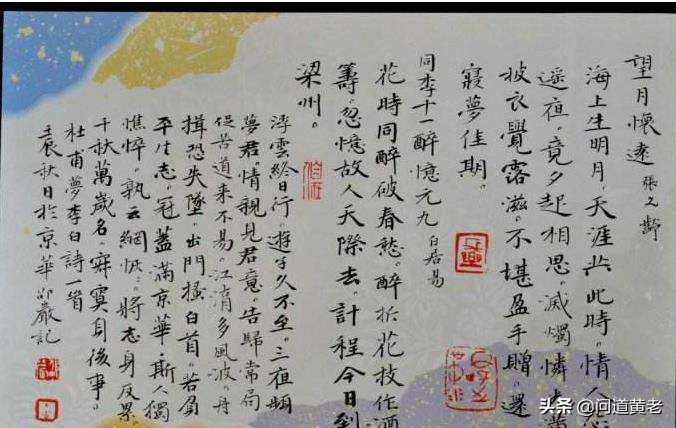 望月懷遠 張九齡
海上生明月。天涯共此時。情人怨
遥夜。竟夕起相思。滅燭憐光滿
披衣覺露滋。不堪盈手贈。還
寢夢佳期。
同李十一醉憶元九 白居易
花時同醉破春愁。醉折花枝作酒
籌。忽憶故人天際去。計程今日到
梁州。
浮雲終日行。遊子久不至。三夜頻
夢君。情親見君意。告歸常局
促。苦道来不易。江湖多風波。舟
楫恐失墜。出門搔白首。若負
平生志。冠蓋滿京華。斯人獨
憔悴。孰云網恢。將老身反累。
千秋萬歲名。寂寞身後事。
杜甫夢李白詩一首
壬辰秋日於京華 巖記
头条 @问道黄老